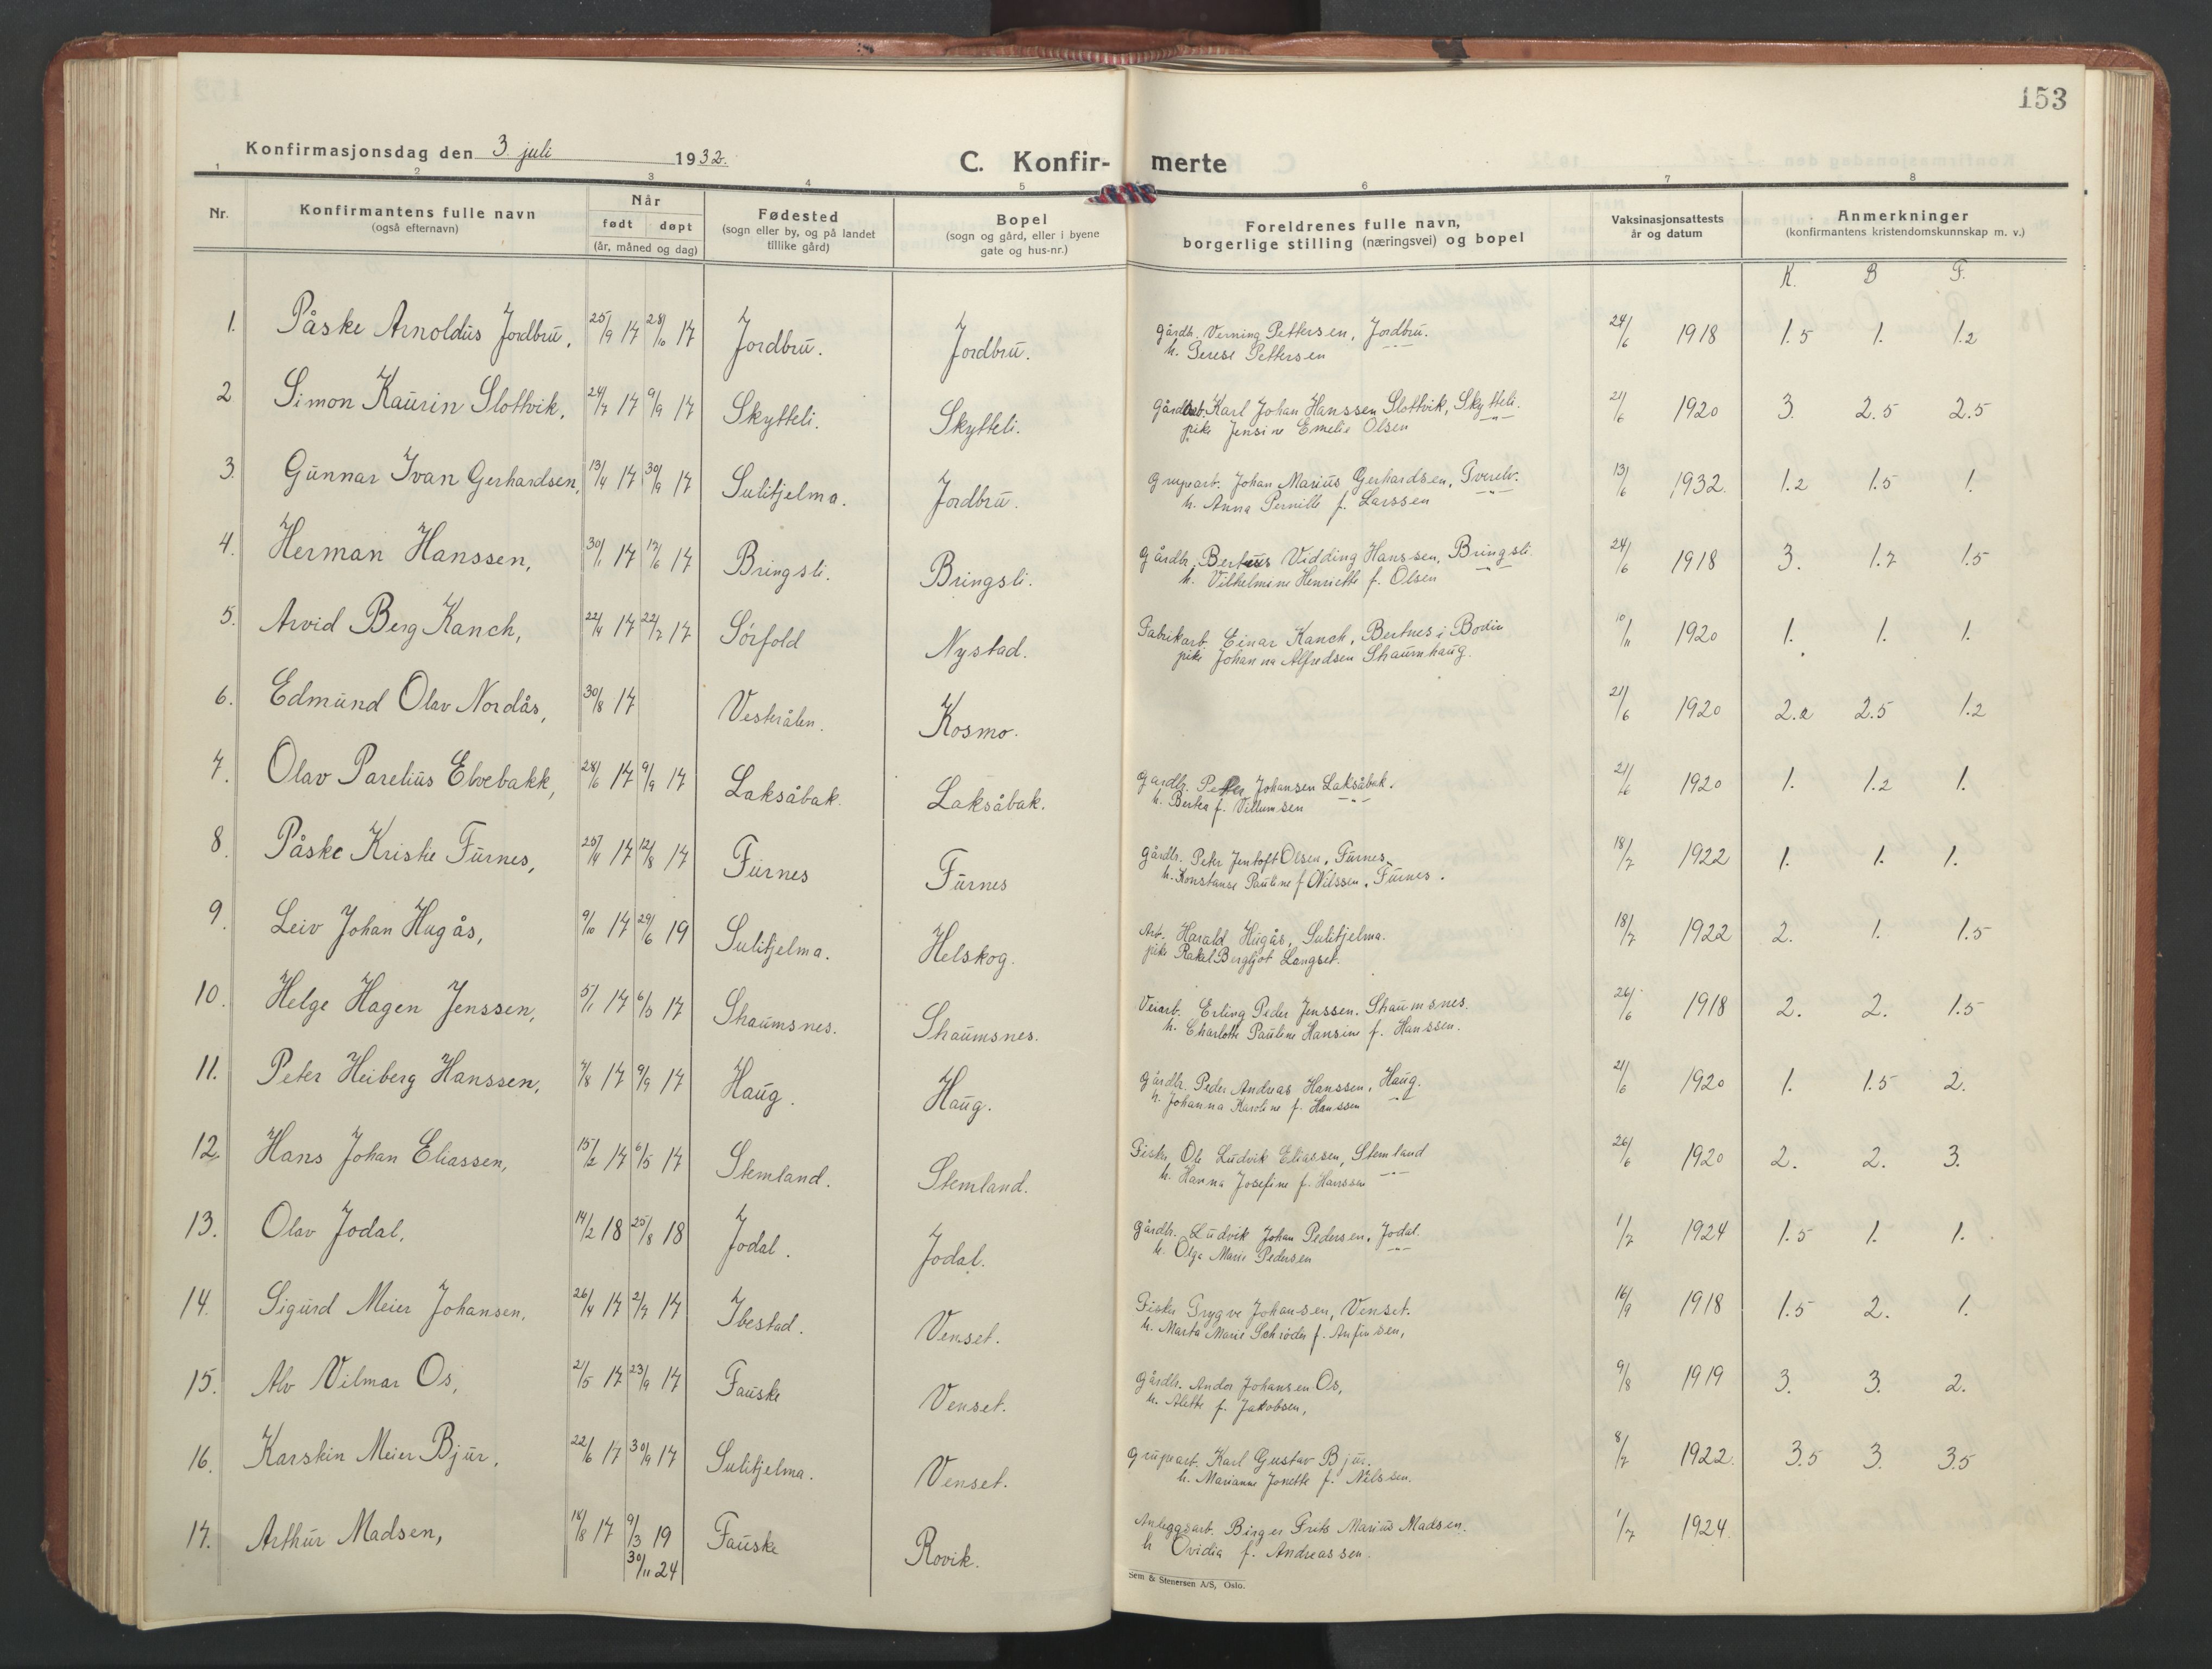 153
Konfirmasjonsdag den 3. juli 1932.
C. Konfir- merte
1 2 3 4 5 6 7 8
Nr. Konfirmantens fulle navn (også efternavn) Når født døpt (år, måned og dag) Fødested (sogn eller by, og på landet tillike gård) Bopel (sogn og gård, eller i byene gate og hus-nr.) Foreldrenes fulle navn, borgerlige stilling (næringsvei) og bopel Vaksinasjonsattests år og datum Anmerkninger (konfirmantens kristendomskunnskap m. v.)
K. B F.
1. Påske Arnoldus Jordbru, 25/9 17 28/10 17 Jordbru. Jordbru. Gårdbr. Verning Pettersen, Jordbru. 24/6 1918 1.5 1. 1.2
h. Perese Pettersen -"-
2 Simon Kaurin Slottvik, 24/7 17 9/9 17 Skytteli. Skytteli. Gårdarb. Karl Johan Hanssen Slottvik, Skytteli. 21/6 1920 3. 2.5 2.5
pike Jensine Emelie Olsen -"-
3. Gunnar Ivan Gerhardsen, 13/4 17 30/9 17 Sulitjelma. Jordbru. Grupearb. Johan Marius Gerhardsen, Tverelv. 13/6 1932. 1.2 1.5 1.
h. Anna Pernille f. Larssen -"-
4. Herman Hanssen, 30/1 17 17/6 17 Bringsli. Bringsli. Gårdbr. Berteus Vidding Hanssen, Bringsli. 24/6 1918 3. 1.7 1.5
h. Vilhelmine Henriette f. Olsen -"-
5. Arvid Berg Kanch, 22/4 17 22/7 17 Sörfold Nystad. Fabrikarb. Einar Kanch, Bertnes i Bodin 10/11 1920 1. 1. 1.
pike Johanna Alfredsen Skaumhaug.
6. Edmund Olav Nordås, 30/8 17 Vesterålen. Kosmo. 21/6 1920 2.2 2.5 1.2
7. Olav Parelius Elvebakk, 28/6 17 9/9 17 Laksåbak. Laksåbak. Gardbr. Petter Johansen Laksåbak. 21/6 1920 1. 1.2 1.
h. Berta f. Villumsen -"-
8. Påske Kristie Furnes, 25/4 17 12/8 17 Furnes Furnes Gårdbr. Peter Jentoft Olsen, Furnes. 18/7 1922 1. 1. 1.
h. Konstanse Pauline f. Nilssen, Furnes.
9. Leiv Johan Hugås, 9/10 17 29/6 19 Sulitjelma. Helskog. Arb. Harald Hugås, Sulitjelma. 18/7 1922 2. 1. 1.5
pike Rakel Bergljot Langset.
10. Helge Hagen Jenssen, 5/1 17 6/5 17 Skaumsnes. Skaumsnes. Veiarb. Erling Peder Jenssen. Skaumsnes. 26/6 1918 2. 2. 1.5
h. Charlotte Pauline Hansine f. Hanssen.
11. Peter Heiberg Hanssen, 7/8 17 9/9 17 Haug. Haug. Gårdbr. Peder Andreas Hanssen, Haug. 21/6 1920 1. 1.5 2.
h. Johanna Karoline f. Hanssen -"-
12. Hans Johan Eliassen, 15/2 17 6/5 17 Stemland. Stemland. Fisker Ole Ludvik Eliassen, Stemland 26/6 1920 2. 2. 3.
h. Hanna Josefine f. Hanssen -"-
13. Olav Jodal, 14/2 18 25/8 18 Jodal. Jodal. Gårdbr. Ludvik Johan Pedersen, Jodal. 1/7 1924 1.5 1. 1.
h. Olga Marie Pedersen -"-
14. Sigurd Meier Johansen, 26/4 17 2/7 17 Ibestad. Venset. Fisker Trygve Johansen, Venset. 16/9 1918 1.5 2. 1.
h. Marta Marie Schröder f. Anfinsen,
15. Alv Vilmar Os, 2/5 17 23/9 17 Fauske Venset. Gårdbr. Andor Johansen Os, 9/8 1919 3. 3. 2.
h. Alette f. Jakobsen,
16. Karstein Meier Bjur, 22/6 17 30/9 17 Sulitjelma. Venset. Grupearb. Karl Gustav Bjur. 8/7 1922. 3.5 3. 3.5
h. Marianne Jonette f. Nilssen.
17. Arthur Madsen, 18/8 17 9/3 19 Fauske Rovik. Anleggsarb. Birger Frits Marius Madsen. 1/7 1924.
30/11 24 h Ovidia f. Andreassen.
Sem & Stenersen A/S, Oslo.